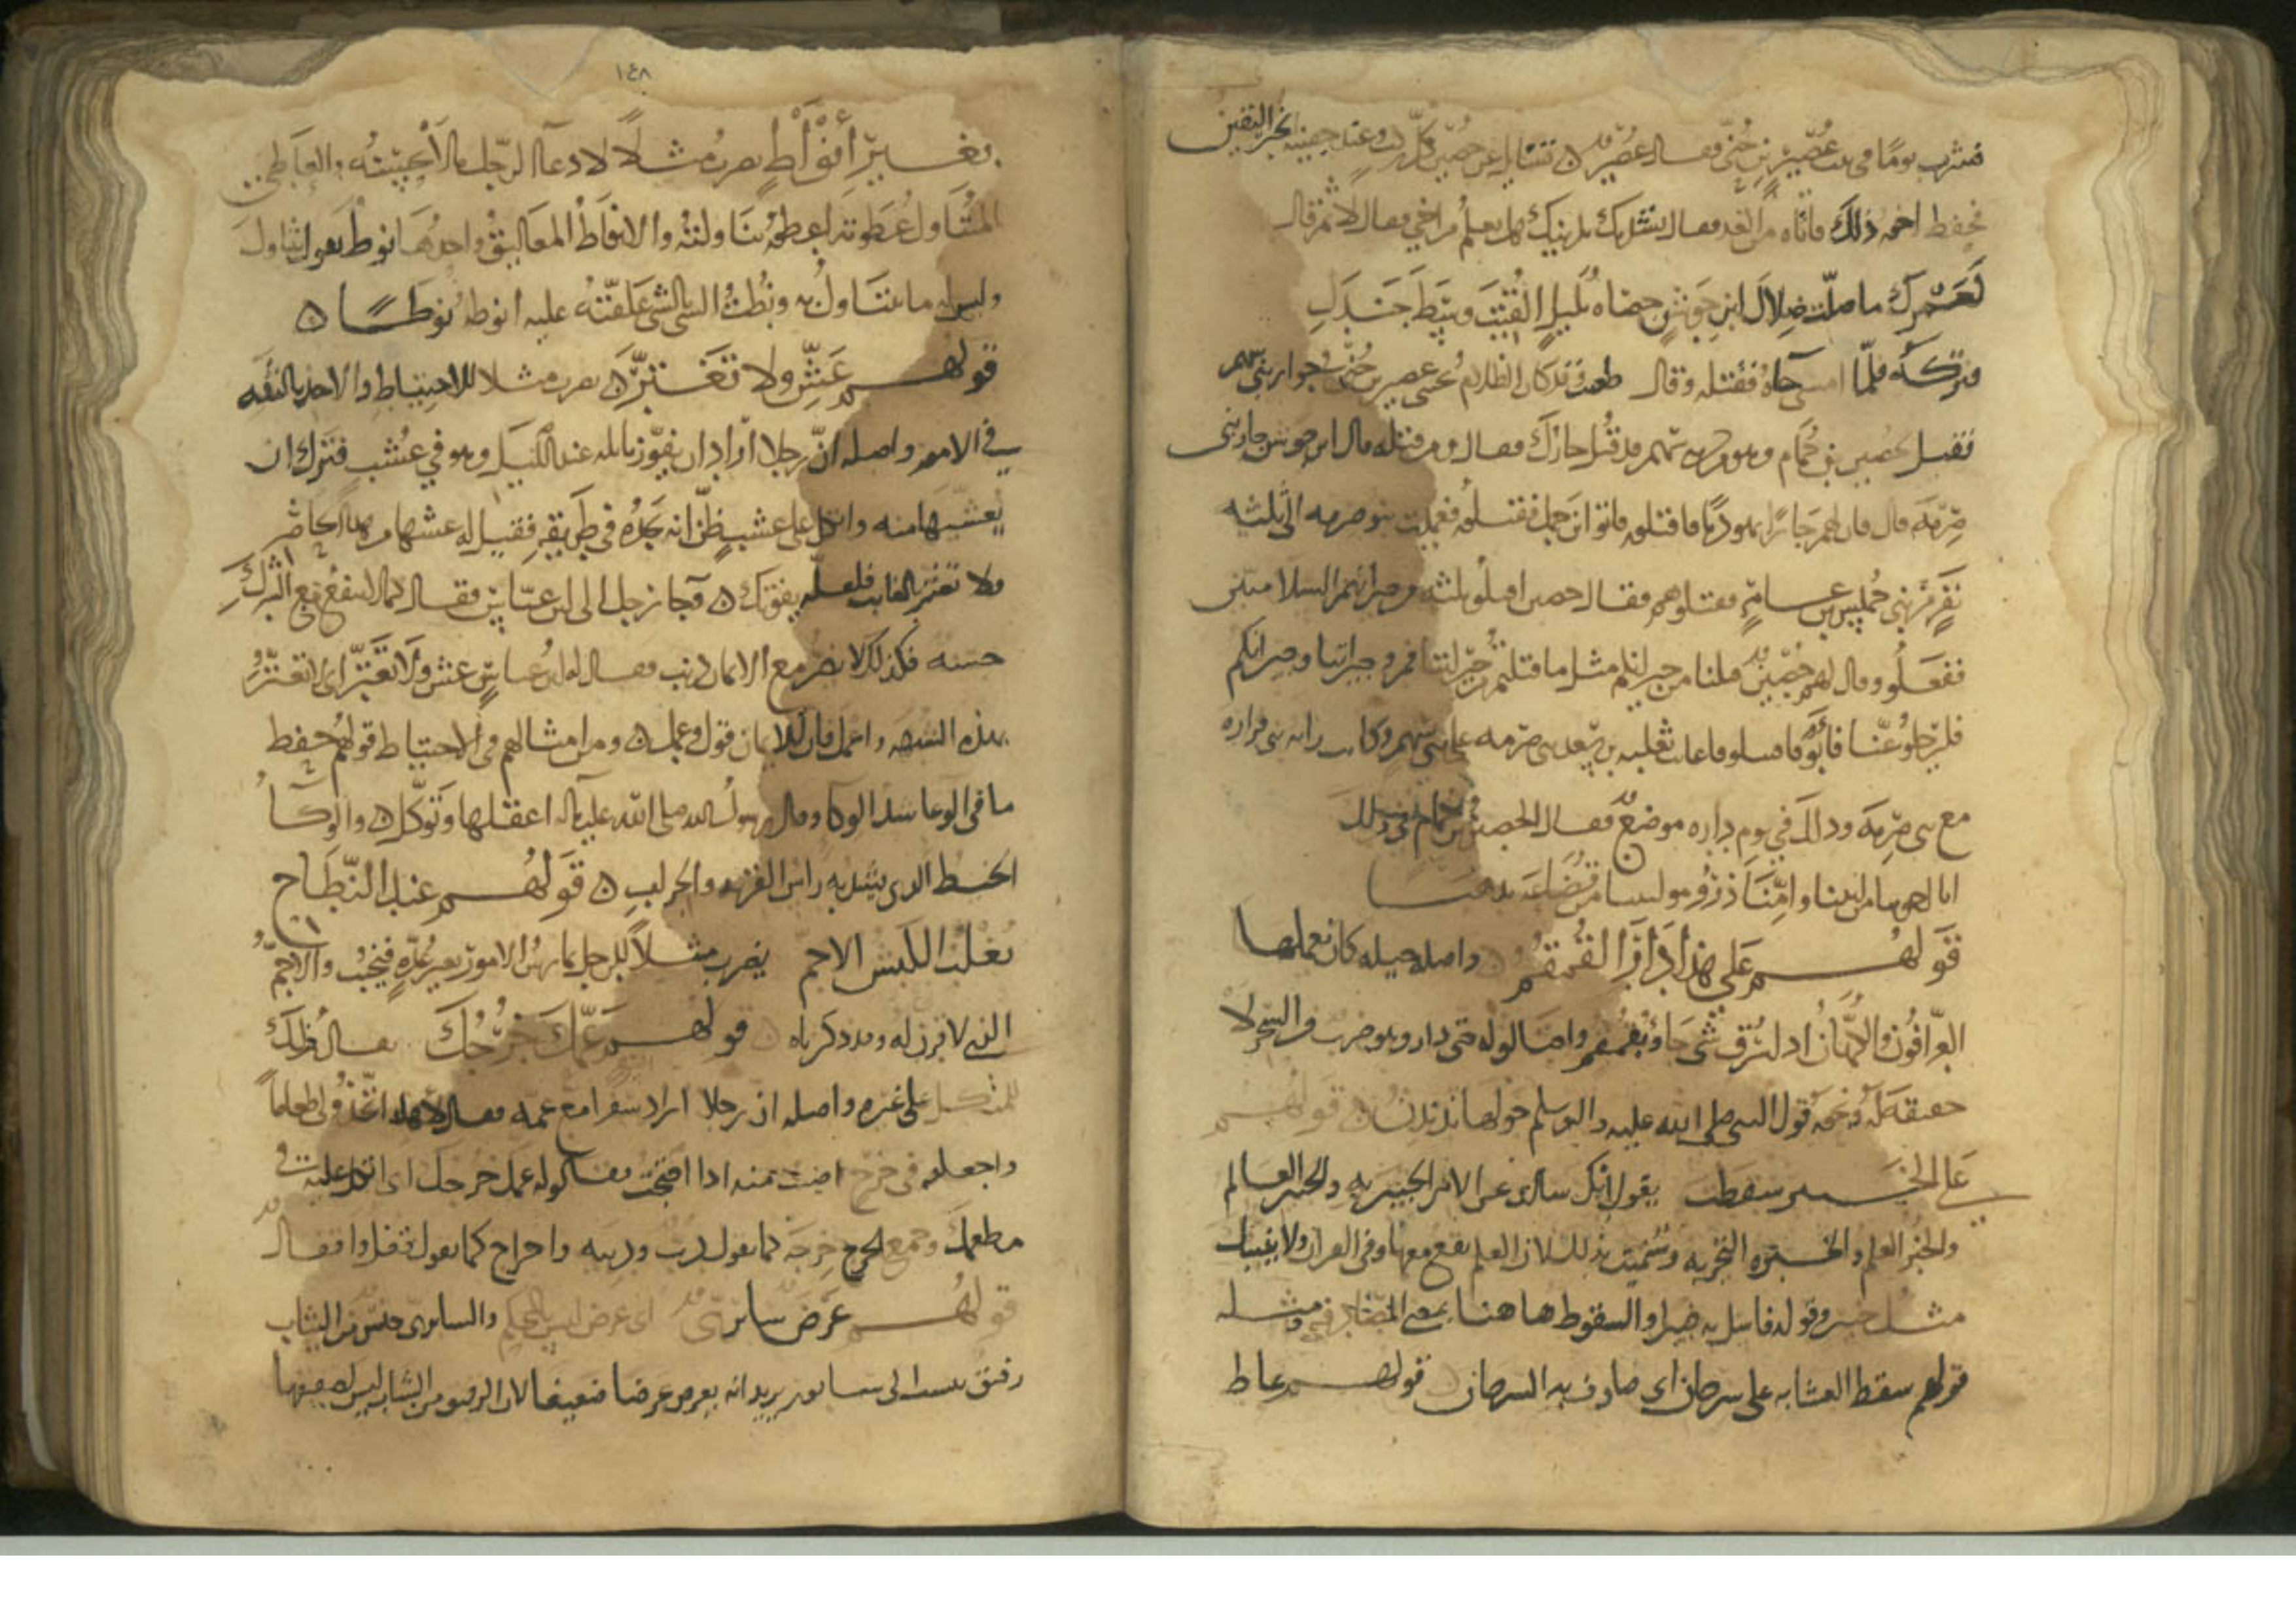 فشرب يومًا فى بيت عُصَيْر بن حُنَىّ فقال عُصَيْر تسايل عن حُصَيْن كل ركب وعند جهينة الخبر اليقين
فحفظ اخوه ذلك فاتاه من الغد فقال نشدتك بدينك هل تعلم من اخى فقال لا ثم قال
لَعَمْرك ما ضلّت ضلال ابن جَوشن حصاه بليل القيت وسط جندل
فتركه فلمّا امسى جاه فقتله وقال طعنت وقد كان الظلام يُجنّنى عصير بن حُنَىّ جوار بنى سهم
فقيل لحصين بن حُمَام وهو من بنى سهم قد قُتل جارك فقال ومن قتله قال ابن جوشن جار بنى
صِرْمَة قال فان لهم جارًا يهوديًا فاقتلوه فاتوا ابن حمل فقتلوه فعمدت بنو صرمه الى ثلثه
نَفَرٍ من بنى حُمَيس بن عامر فقتلوهم فقال حصين اقتلوا ثلثه من جيرانهم السلامانيين
ففعلُوا وقال لهم حُصَين قتلنا من جيرانكم مثل ما قتلتم من جيراننا فمروا جيراننا وجيرانكم
فليرحلُوا عنّا فابوا فاقتتلوا فاعانت ثعلبه بن سعد بنى صرمه على بنى سهم وكانت رايه بنى فزاره
مع بنى صِرْمَه وذلك فى يوم داره موضع فقال الحصين بن حمام فى ذلك
قَولهُم على هذا دَارَ القُمقُم واصله حيله كان يعملها
العرّافُون والكهّان اذا سُرق شى جاوا بقمقم واحتالوا له حتى دار وهو ضرب من السحر لا
حقيقه له ونحوه قول النبى صلى الله عليه واله وسلم حولها ندندن قَولهُم
على الخبير سقطت يقول انك سالت عن الامر الخبير به والخبير العالم
والخبر العلم والخبره التجربه وسُميت بذلك لان العلم يقع معها وفى القران ولا ينبيك
مثل خبير وقوله فاسل به خبيرا والسقوط هاهنا بمعنى المصادفه ومثله
قولهم سقط العشا به على سرحان اى صادف به السرحان قولهم عاط
١٤٨
بغير أَنْوَاطٍ يضرب مثلًا لادعا الرّجل ما لا يُحسنُه والعَاطى
المتناول عَطَوته اعطوه تناولته والانواط المعاليق واحدها نوط يقول يتناول
وليس له ما يتناول به ونُطْتُ الشى بالشى علّقته عليه انوطه نوطا
قولهم عَشِّ ولا تَغْتَرّ يضرب مثلا للاحتياط والاخذ بالثقه
فى الامور واصله انّ رجلا اراد ان يفوّز بابله عند الليل وهو فى عُشب فترك ان
يعشّيها منه واتكل على عشب ظنّ انه يجده فى طريقه فقيل له عشها من هذا الحاضر
ولا تغتر بالغايب فلعله يفوتك وجا رجل الى ابن عبّاس فقال كما لا ينفع مع الشرك
حسنه فكذلك لا يضر مع الايمان ذنب فقال له ابن عباس عش ولا تَغْتَرّ اى لا تغترر
بهذه الشبهه واعمل فان الايمان قول وعمل ومن امثالهم فى الاحتياط قولهم حفظ
ما فى الوعا شد الوكا وقال رسول الله صلى الله عليه واله اعقلها وتوكّل والوكا
الخيط الذى يشد به راس القربه والجراب قَولهُم عند النّطَاح
يُغْلَبُ الكبش الاجم يضرب مثلًا للرجل يمارس الامور بغير عُدّه فيخيب والاجمّ
الذى لا قرن له وقد ذكرناه قولهم عمّك خُرْجُك يقال ذلك
للمتكل على غيره واصله ان رجلا اراد سفرا مع عمه فقال لاهله اتخذوا لى طعاما
واجعلوه فى خرج اصبت منه اذا احتجت فقالوا له عمك خرجك اى اتكل عليه فى
مطعمك وجمع الخرج خِرَجَه كما تقول دب ودببه واخراج كما تقول قفل واقفال
قولهُم عرَض سابرىّ اى عرض ليس بالمحكم والسابرى جنس من الثياب
رقيق ينسب الى سابور يريد انه يعرض عرضا ضعيفا لان الرقيق من الثياب ليس